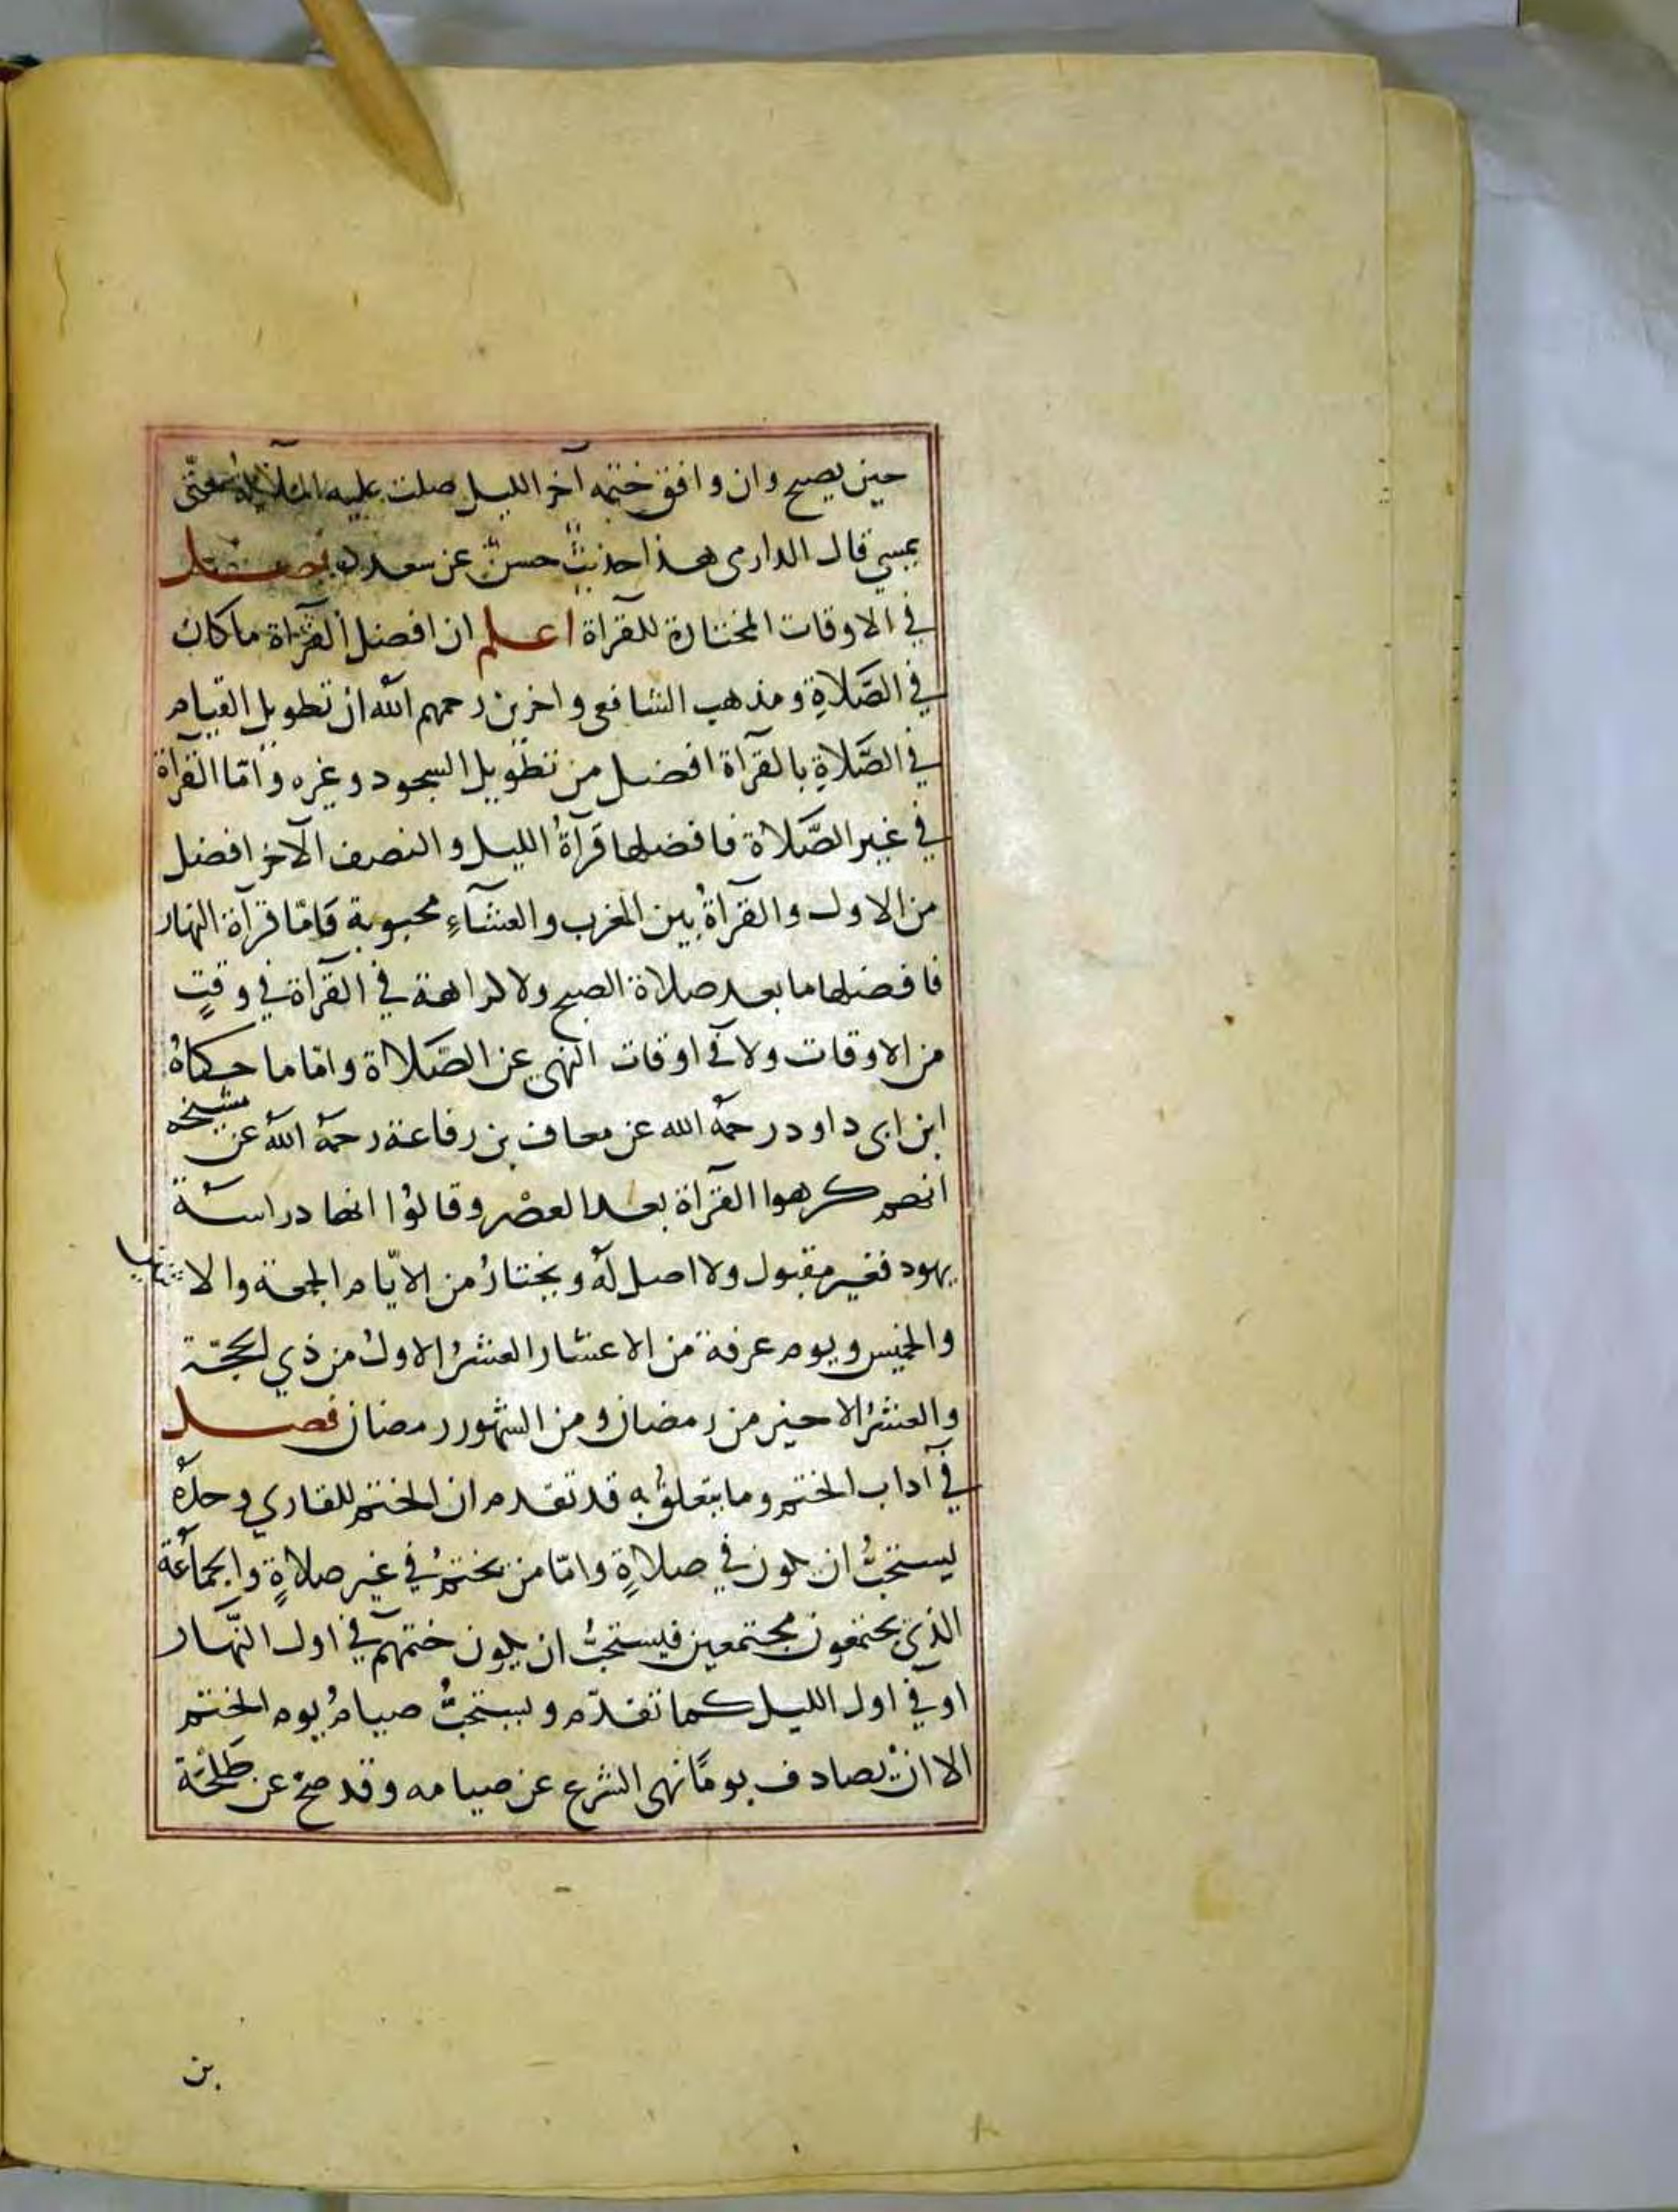 حين يصبح وان وافق ختمه آخر الليل صلت عليه الملآئكة حتّى
يمسي قال الدارمى هذا حديث حسن عن سعد فصل
في الاوقات المختارة للقرآة اعلم ان افضل القرآة ما كان
في الصّلاةِ ومذهب الشافعى واخرين رحمهم الله ان تطويل القيام
في الصَّلاةِ بالقرآة افضل من تطويل السجود وغيره وامّا القرآة
في غير الصَّلاة فافضلها قرآةُ الليل والنصف الآخر افضل
من الاول والقرآةُ بين المغرب والعشآءِ محبوبة فامّا قرآة النهار
فافضلها ما بعد صلاة الصبح ولا كراهة في القرآة في وقتٍ
من الاوقات ولا في اوقات النهي عن الصّلاة وامّا ما حكاهُ
ابن ابى داود رحمهُ الله عن معاف بن رفاعة رحمهُ اللّه عن مشيخه
انهم كرهوا القرآة بعد العصْر وقالوُا انها دراسة
يهود فغير مقبول ولا اصل لهُ ويختارُ من الايّام الجمعة والاثنين
والخميس ويوم عرفة من الاعشار العشرُ الاولُ من ذي الحجّة
والعشرُ الاخير من رمضان ومن الشهور رمضان فصل
في آداب الختم وما يتعلقُ به قد تقدم ان الختم للقاري وحدهُ
يستحبُّ ان يكون في صلاةٍ وامّا من يختمُ في غير صلاةٍ والجماعة
الذى يختمون مجتمعين فيستحبُّ ان يكون ختمهم في اول النّهار
او في اول الليل كما تقدّم ويستحبُّ صيامُ يوم الختم
الا انْ يصادف يومًا نهى الشرع عن صيامه وقد صحّ عن طلحْة
بن